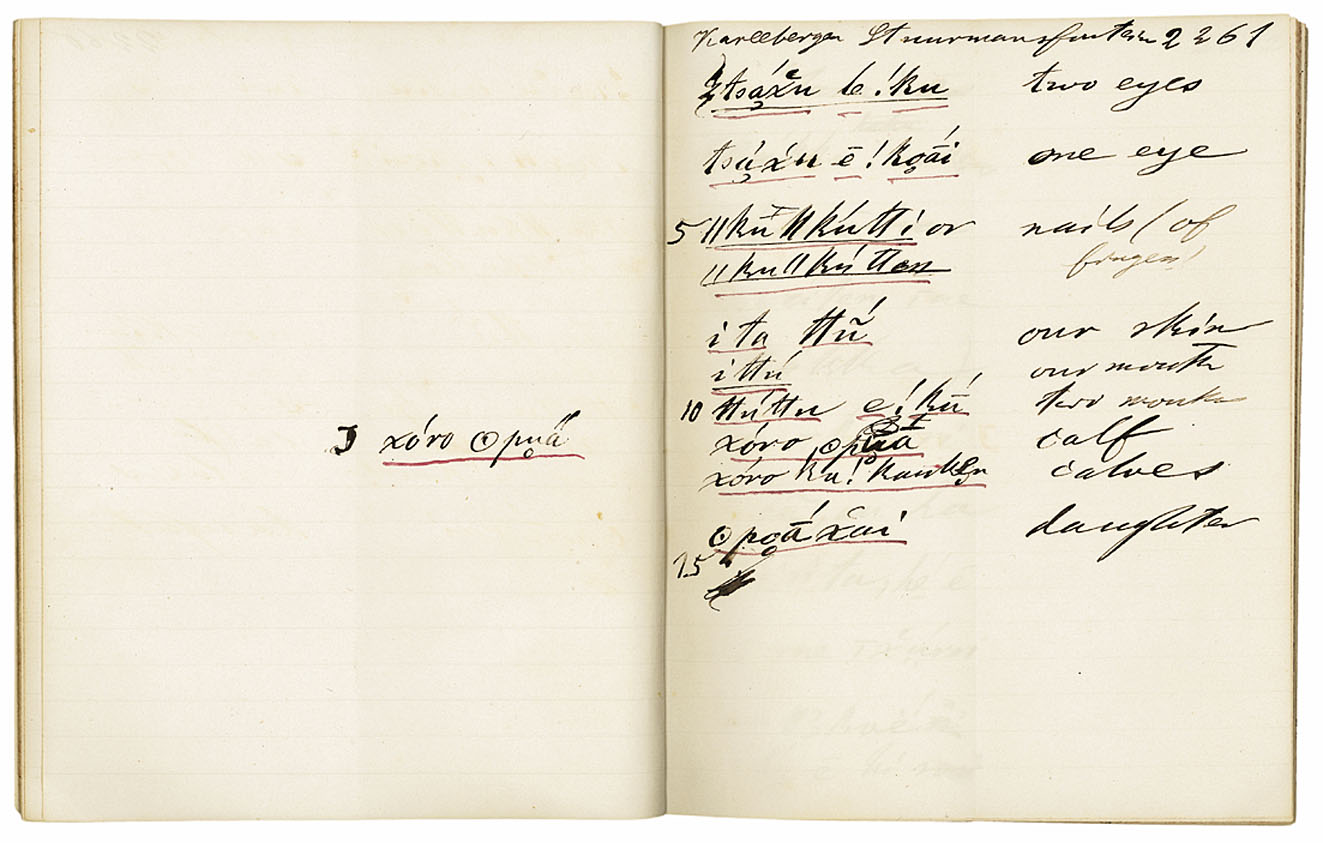 I xóro ʘpuä
Kareebergen Stuurmansfontein 2261
tsá̤xu e !ku two eyes
tsá̤xu ē !ko̤ā́i one eye
5 ǁkuǁkútti or nails (of
ǁkuǁkútten fingers)
i ta ttū̃́ our skin
i ttú our mouth
10 ttúttu e !kū́ two mouths
xóro ʘpuā calf
xóro ku !kauken calves
ʘpo̤ā́ xai daughter
15